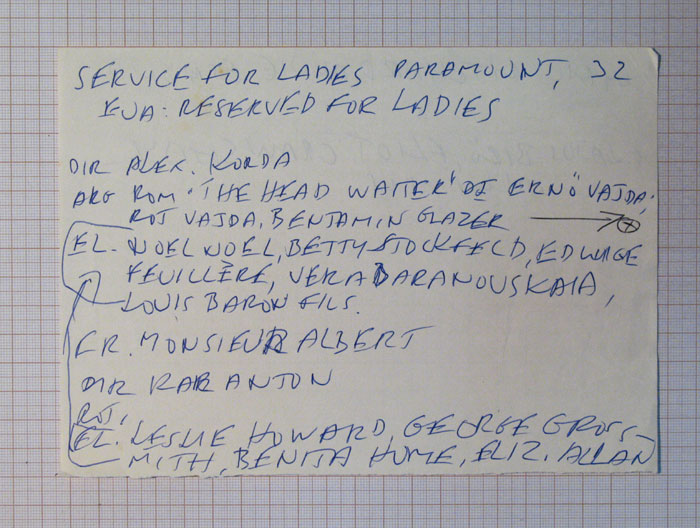 SERVICE FOR LADIES PARAMOUNT, 32
EUA: RESERVED FOR LADIES
DIR ALEX. KORDA
ARG ROM. "THE HEAD WAITER" DE ERNÖ VAJDA;
ROT VAJDA, BENJAMIN GLAZER
EL. NOEL NOEL, BETTY STOCKFELD, EDWIGE
FEUILLÈRE, VERA BARANOUSKAIA,
LOUIS BARON FILS.
FR. MONSIEUR ALBERT
DIR KARL ANTON
ROT,
EL. LESLIE HOWARD, GEORGE GROS-
MITH, BENITA HUME, ELIZ. ALLAN